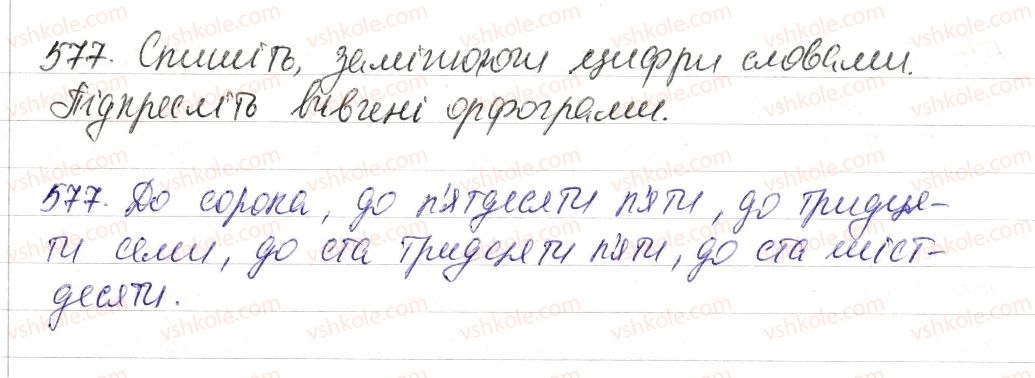 577. Спишіть, замінюючи цифри словами.
Підкресліть вивчені орфограми.
577. До сорока, до п'ятдесяти п'яти, до тридця-
ти семи, до ста тридцяти п'яти, до ста шіст-
десяти.